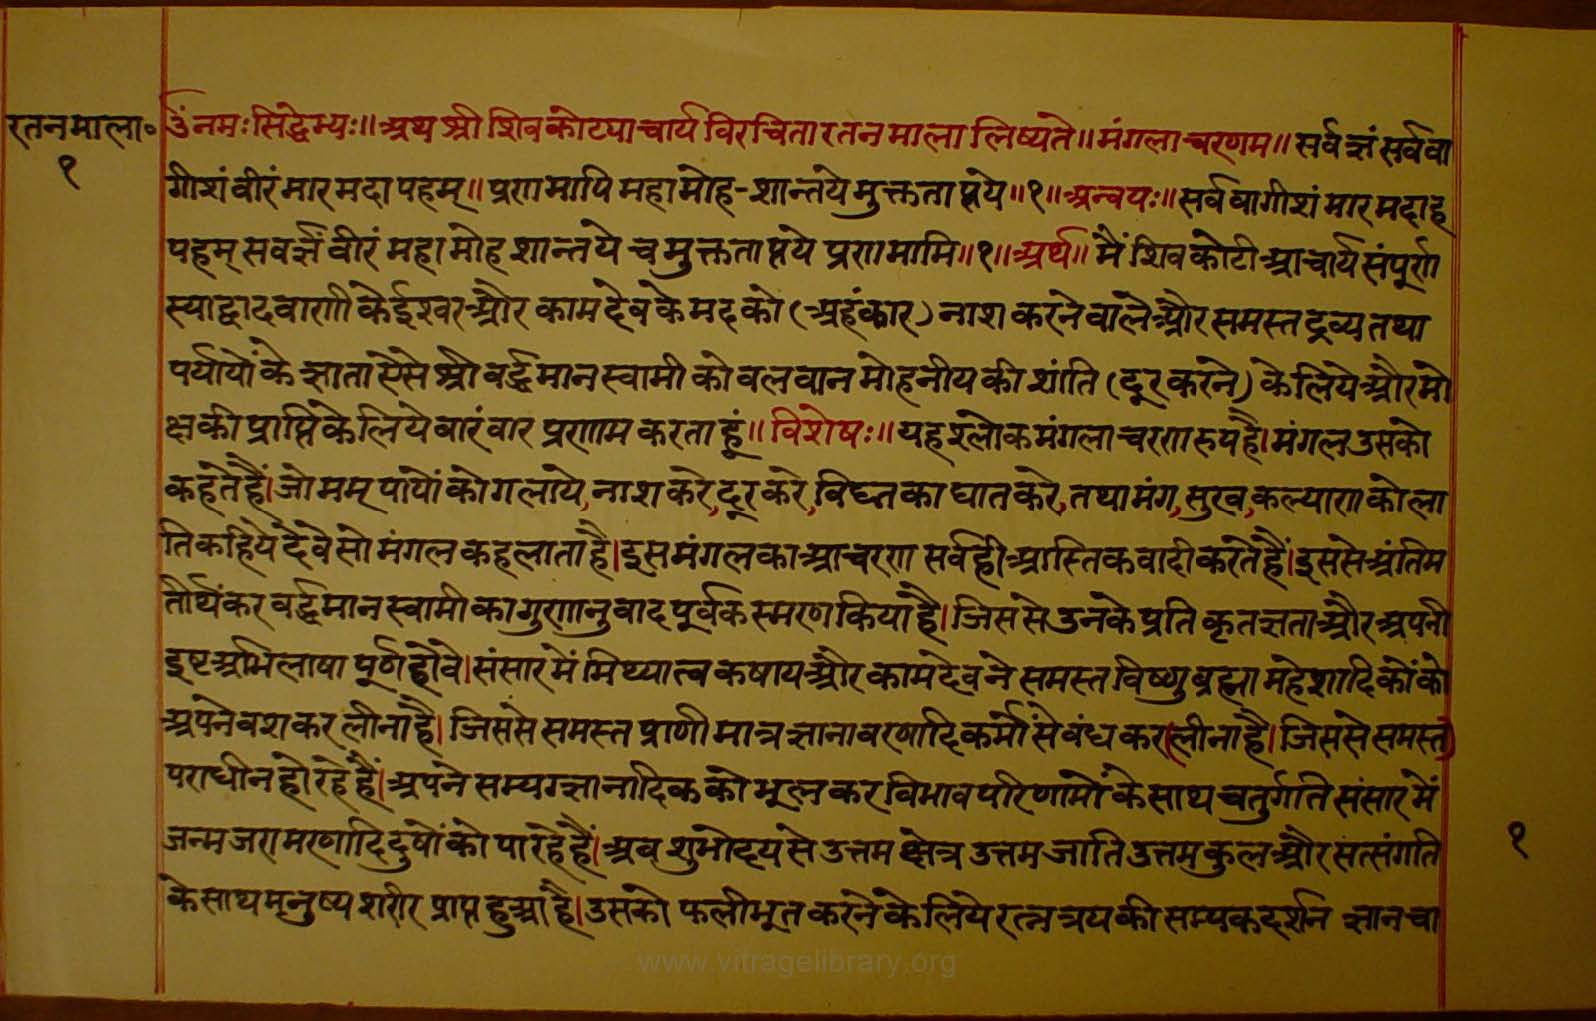 रतनमाला॰
१
उंनमःसिद्धेभ्यः॥अथ श्री शिवकोट्याचार्य विरचिता रतनमाला लिष्यते॥मंगलाचरणम॥ सर्वज्ञं सर्ववा
गीशं वीरं मारमदापहम्॥ प्रणमापि महामोह-शान्तये मुक्तताप्तये॥१॥अन्वयः॥सर्ववागीशं मारमदाह
पहम् सवर्ज्ञं वीरं महामोह शान्तये च मुक्तताप्तये प्रणमामि॥१॥अर्थ॥ मैं शिवकोटी आचार्य संपूर्ण
स्याद्वादवाणी के ईश्वर और कामदेव के मद को (अहंकार) नाश करने वाले और समस्त द्रव्य तथा
पर्यायों के ज्ञाता ऐसे श्री वर्द्धमान स्वामी को वलवान मोहनीय की शांति (दूर करने) के लिये और मो
क्ष की प्राप्ति के लिये वारंवार प्रणाम करता हूं॥ विशेषः॥ यह श्लोक मंगलाचरण रुप है। मंगल उसको
कहते हैं। जो मम् पापों को गलाये, नाश करे, दूर करे, विघ्न का घात करे, तथा मंग, सुख, कल्याण को ला
ति कहिये देवे सो मंगल कहलाता है। इस मंगल का आचरण सर्व ही आस्तिकवादी करते हैं। इससे अंतिम
तीर्थंकर वर्द्धमान स्वामी का गुणानुवाद पूर्वक स्मरण किया है। जिससे उनके प्रति कृतज्ञता और अपनी
इष्ट अभिलाषा पूर्ण होवे। संसार में मिथ्यात्व कषाय और कामदेव ने समस्त विष्णु ब्रह्मा महेशादिकों को
अपने वश कर लीना है। जिससे समस्त प्राणी मात्र ज्ञानावरणादि कर्मों से वंध कर लीना है। जिससे समस्त
पराधीन हो रहे हैं। अपने सम्यग्ज्ञानादिक को भूलकर विभाव परिणामों के साथ चतुर्गति संसार में
जन्म जरा मरणादि दुषों को पा रहे हैं। अव शुभोदय से उत्तम क्षेत्र उत्तम जाति उत्तम कुल और सत्संगति
के साथ मनुष्य शरीर प्राप्त हुआ है। उसको फलीभूत करने के लिये रत्नत्रय की सम्यकदर्शन ज्ञान चा
१
www.vitragelibrary.org